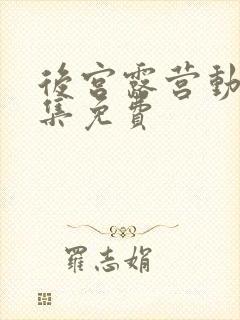 後宮露营動
集免費
羅志娟